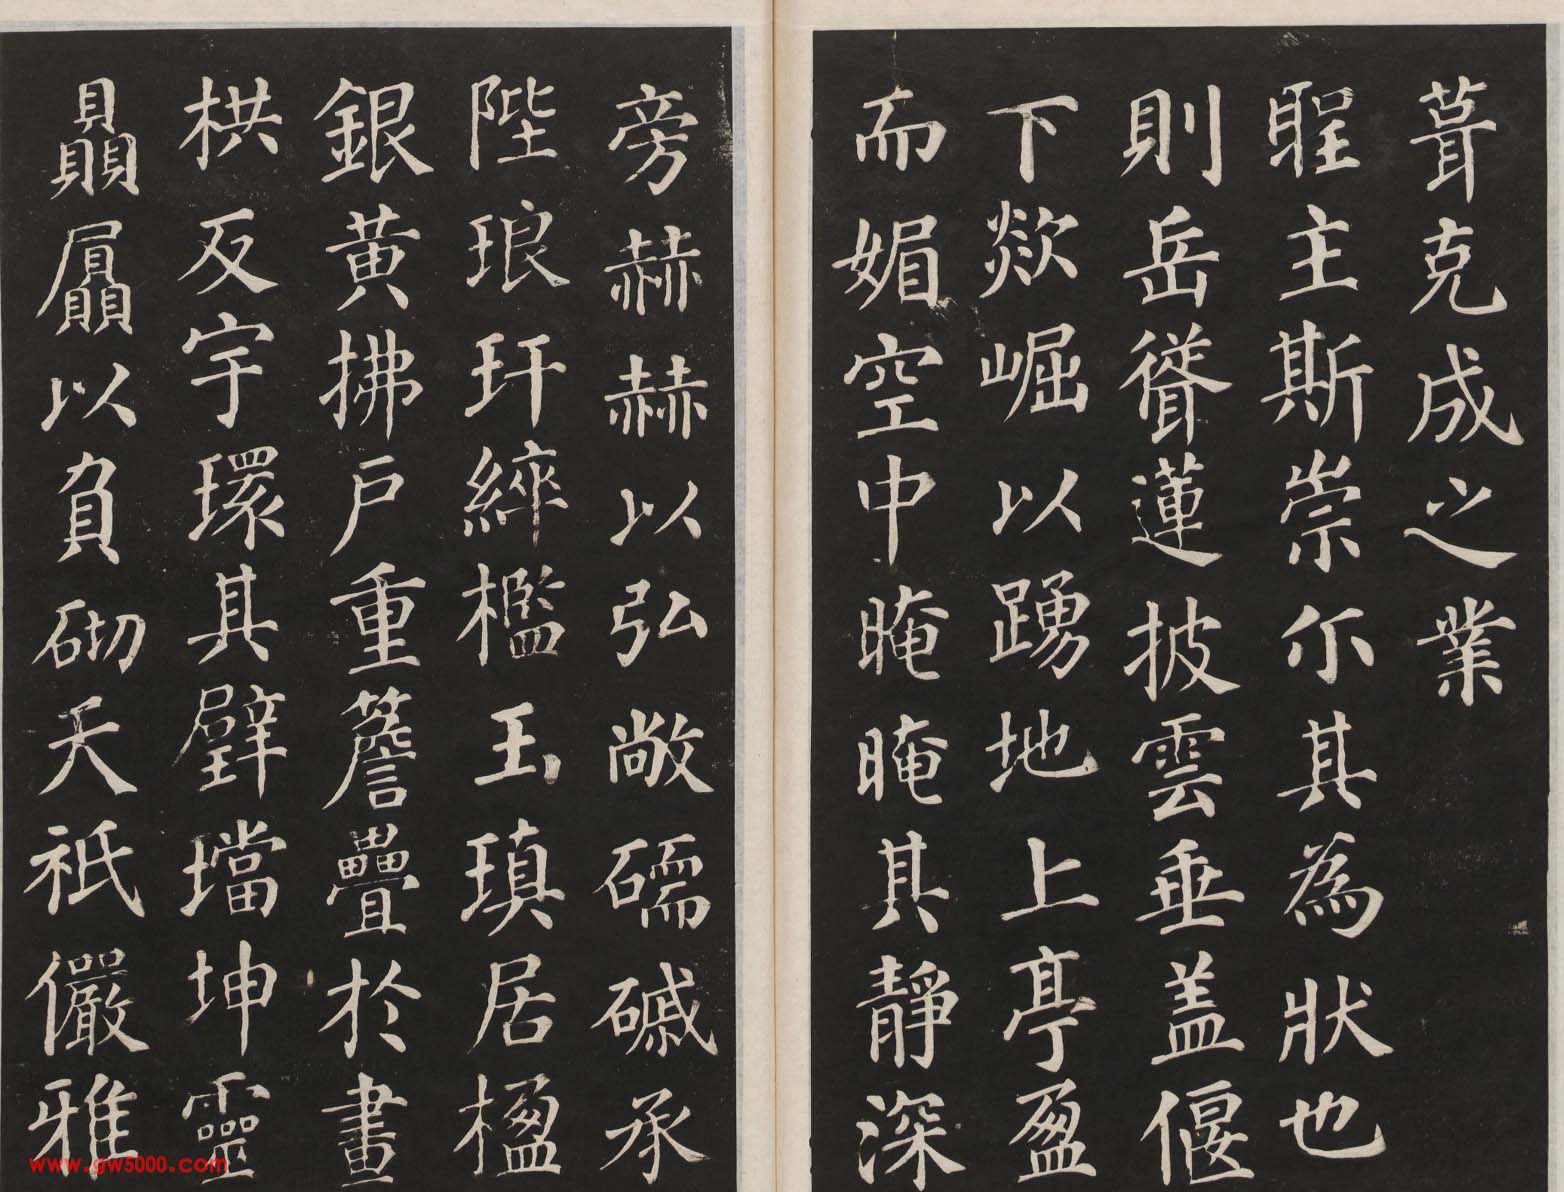 葺克成之業
聖主斯崇尒其為狀也
則岳聳蓮披雲垂盖偃
下欻崛以踴地上亭盈
而媚空中晻晻其靜深
旁赫赫以弘敞礝磩承
陛琅玕綷檻玉瑱居楹
銀黄拂戶重簷疊於畫
栱反宇環其璧璫坤靈
贔屭以負砌天祇儼雅
www.gw5000.com